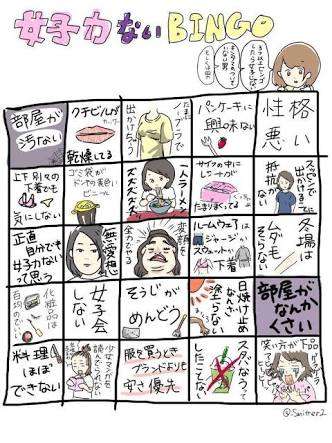 女子力ないBINGO
部屋が
汚ない
クチビルが
乾燥してる
ノーブラで
出かけてる
パンケーキに
興味ない
性格
悪い
上下別々の
下着でも
気にしない
ゴミ袋が
ドンキの黄色い
ビニール
一人ラーメン
ズズズズズ
サイフの中に
レシートが
たまりまくってる
スッピンで
出かけるの
抵抗ない
正直
自分でも
女子力ない
って思う
無愛想
変顔を
全力でやる
ルームウェアは
ジャージか
スウェットか
下着
冬場は
ムダ毛
そらない
化粧品は
百均のでいい
女子会
しない
そうじが
めんどう
日焼け止め
なんざ
塗らない
部屋が
なんか
くさい
料理
ほぼ
できない
少女マンガを
読んでられない
服を買うとき
ブランドよりも
安さ優先
スタバなうって
したことない
笑い方が下品